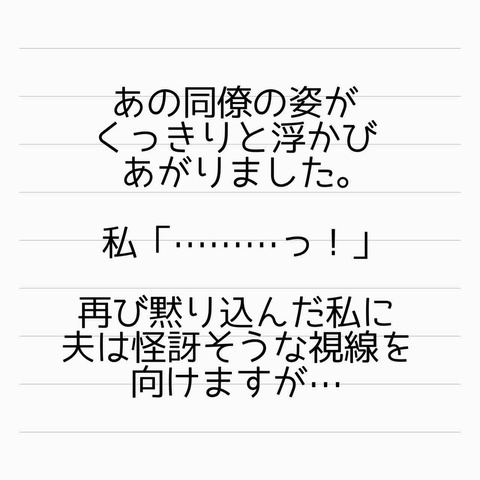 あの同僚の姿が
くっきりと浮かび
あがりました。
私「………っ！」
再び黙り込んだ私に
夫は怪訝そうな視線を
向けますが…